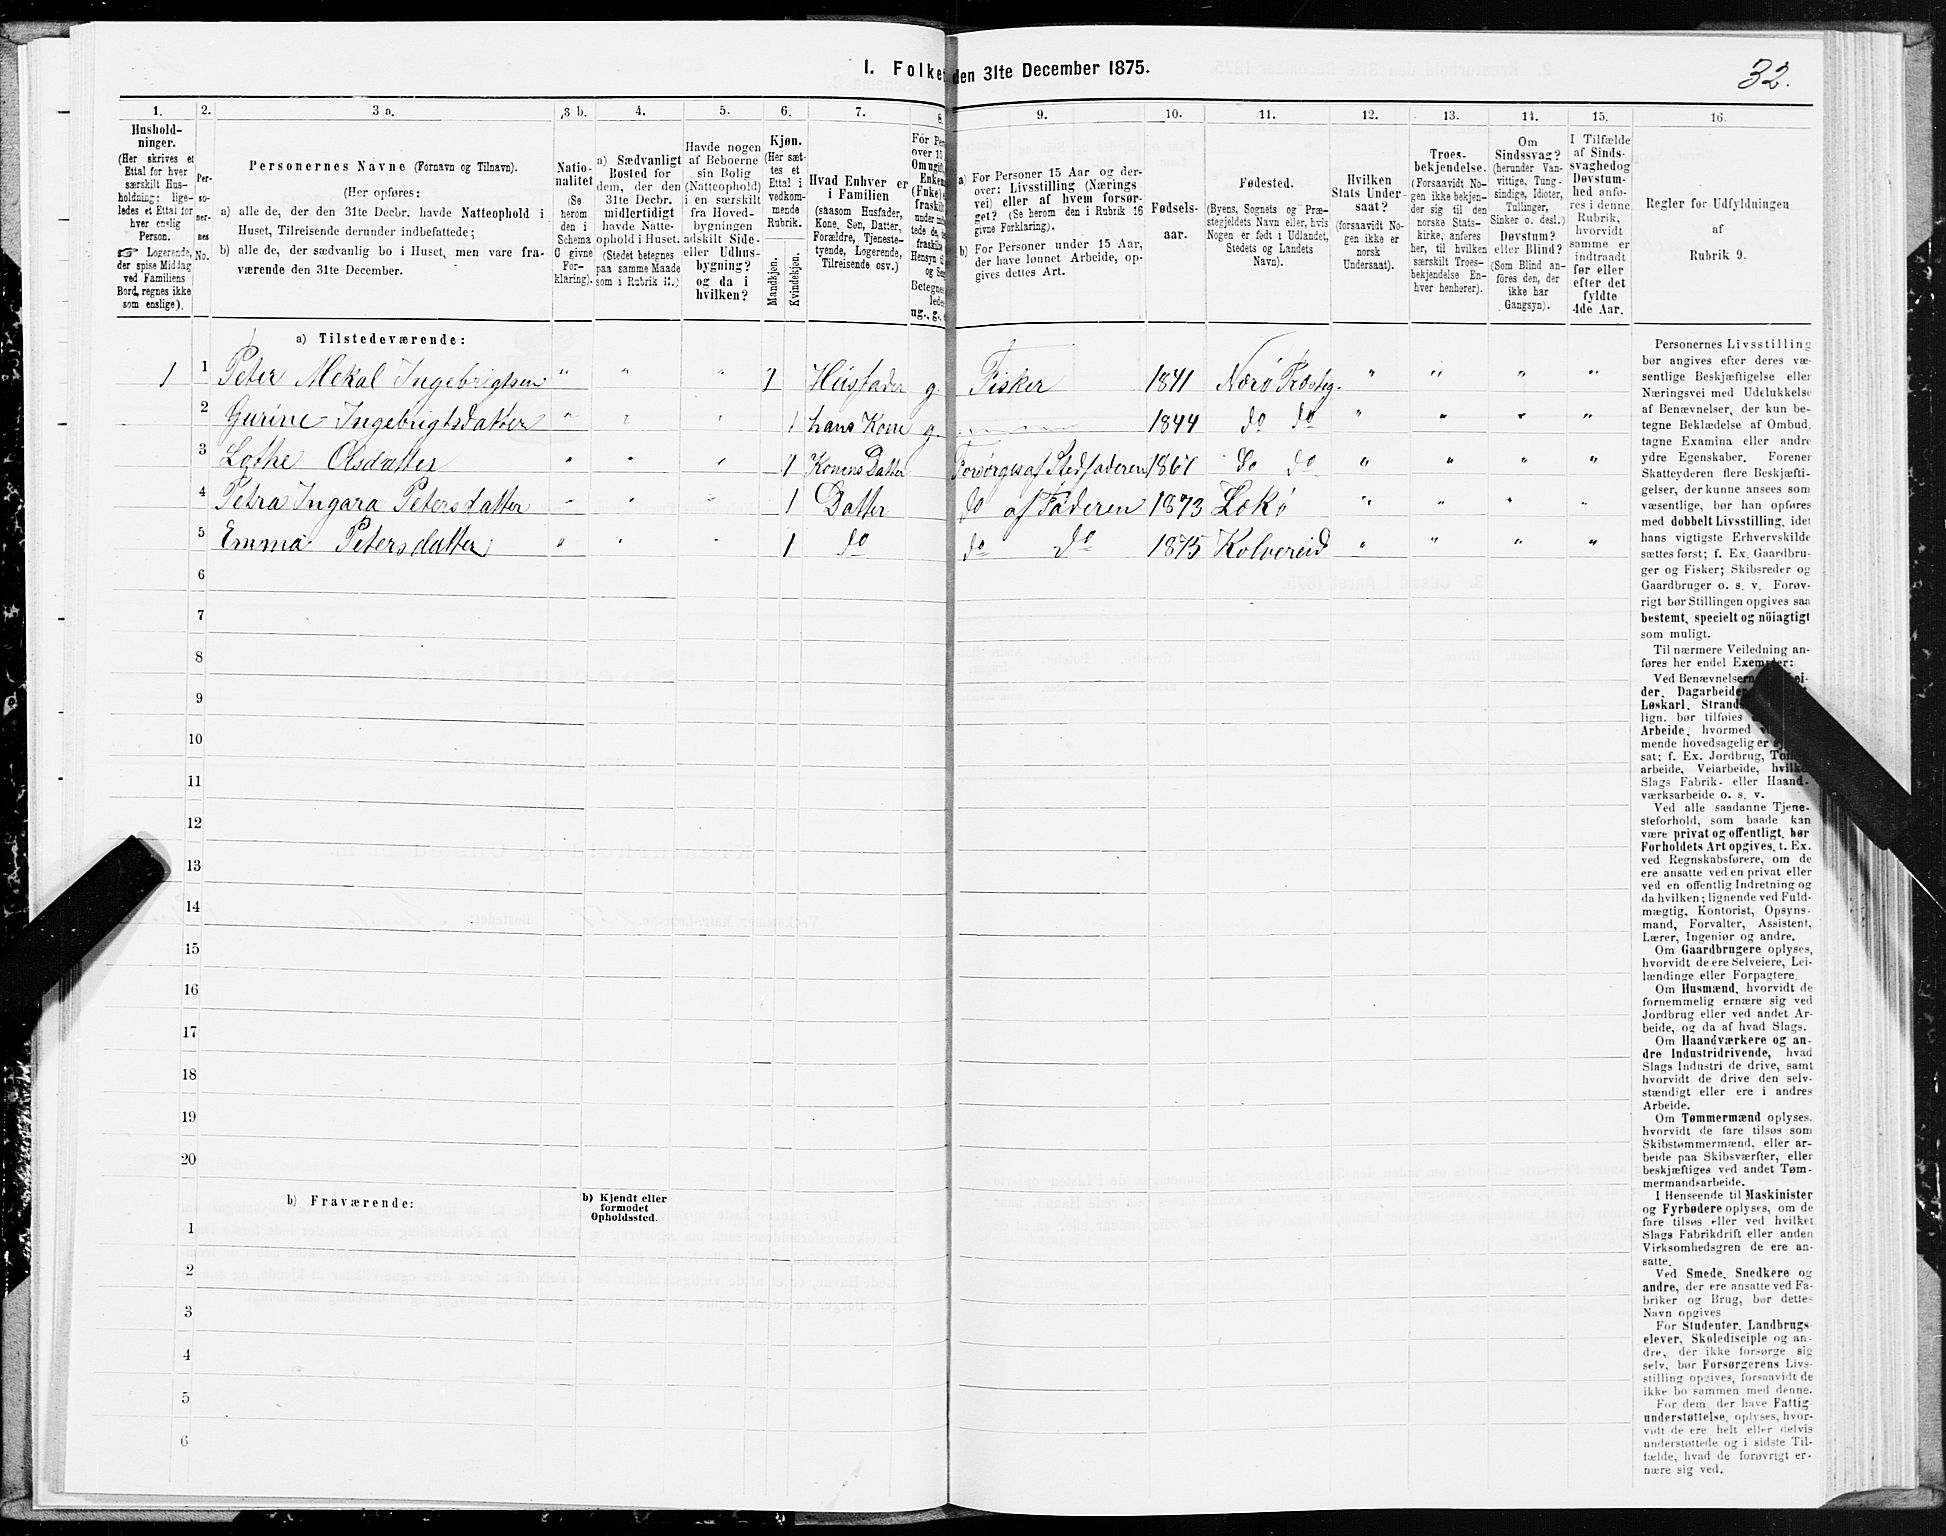 I. Folket den 31te December 1875.
32.
1. 2. 3 a. 3 b. 4. 5. 6. 7. 8. 9. 10. 11. 12. 13. 14. 15. 16.
Hushold-
ninger.
(Her skrives et
Ettal for hver
særskilt Hus-
holdning; lige-
ledes et Ettal for
hver enslig
Person.
Logerende,
der spise Middag
ved Familiens
Bord, regnes ikke
som enslige).
Per-
so-
ner-
nes
No.
Personernes Navne (Fornavn og Tilnavn).
(Her opføres:
a) alle de, der den 31te Decbr. havde Natteophold i
Huset, Tilreisende derunder indbefattede;
b) alle de, der sædvanlig bo i Huset, men vare fra-
værende den 31te December.
Natio-
nalitet
(Se
herom
den i
Schema
C givne
For-
klaring).
a) Sædvanligt
Bosted for
dem, der den
31te Decbr.
midlertidigt
havde Natte-
ophold i Huset.
(Stedet betegnes
paa samme Maade
som i Rubrik 11.)
Havde nogen
af Beboerne
sin Bolig
(Natteophold)
i en særskilt
fra Hoved-
bygningen
adskilt Side-
eller Udhus-
bygning?
og da i
hvilken?
Kjøn.
(Her sæt-
tes et
Ettal i
vedkom-
mende
Rubrik.
Mandkjøn.
Kvindekjøn.
Hvad Enhver er
i Familien
(saasom Husfader,
Kone, Søn, Datter,
Forældre, Tjeneste-
tyende, Logerende,
Tilreisende osv.)
a) For Personer 15 Aar og der-
over: Livsstilling (Nærings
vei) eller af hvem forsør-
get? (Se herom den i Rubrik 16
givne Forklaring).
b) For Personer under 15 Aar,
der have lønnet Arbeide, op-
gives dettes Art.
Fødsels-
aar.
Fødested.
(Byens, Sognets og Præ-
stegjeldets Navn eller, hvis
Nogen er født i Udlandet,
Stedets og Landets
Navn).
Hvilken
Stats Under-
saat?
(forsaavidt No-
gen ikke er
norsk
Undersaat).
Troes-
bekjendelse.
(Forsaavidt No-
gen ikke bekjen-
der sig til den
norske Stats-
kirke, anføres
her, til hvilken
særskilt Troes-
bekjendelse En-
hver henhører).
Om
Sindssvag?
(herunder Van-
vittige, Tung-
sindige, Idioter,
Tullinger,
Sinker o. desl.)
Døvstum?
eller Blind?
(Som Blind an-
føres den, der
ikke har
Gangsyn).
I Tilfælde
af Sinds-
svaghed og
Døvstum-
hed anfø-
res i denne
Rubrik,
hvorvidt
samme er
indtraadt
før eller
efter det
fyldte
4de Aar.
Regler for Udfyldningen
af
Rubrik 9.
a) Tilstedeværende:
1 1 Peter Mekal Ingebrigtsen " " " 1 Husfader g. Fisker 1841 Nærø Præsteg. " " " "
2 Gurine Ingebrigtsdatter " " " 1 hans Kone g. 1844 do do " " " "
3 Lothe Olsdatter " " " 1 Konens Datter Forsørges af Stedfaderen 1867 do do " " " "
4 Petra Ingara Petersdatter " " " 1 Datter do af Faderen 1873 Lekø " " " "
5 Emma Petersdatter " " " 1 do do do 1875 Kolvereid " " " "
6
7
8
9
10
11
12
13
14
15
16
17
18
19
20
b) Fraværende:
b) Kjendt eller
formodet
Opholdssted.
1
2
3
4
5
6
Personernes Livsstilling
bør angives efter deres væ-
sentlige Beskjæftigelse eller
Næringsvei med Udelukkelse
af Benævnelser, der kun be-
tegne Beklædelse af Ombud,
tagne Examina eller andre
ydre Egenskaber. Forener
Skatteyderen flere Beskjæfti-
gelser, der kunne ansees som
væsentlige, bør han opføres
med dobbelt Livsstilling, idet
hans vigtigste Erhvervskilde
sættes først; f. Ex. Gaardbru-
ger og Fisker; Skibsreder og
Gaardbruger o. s. v. Forøv-
rigt bør Stillingen opgives saa
bestemt, specielt og nöiagtigt
som muligt.
Til nærmere Veiledning an-
føres her endel Exempler:
Ved Benævnelserne
der, Dagarbeider
Løskarl, Strands
lign. bør tilføies
Arbeide, hvormed
mende hovedsagelig er
sat; f. Ex. Jordbrug,
arbeide, Veiarbeide, hvilket
Slags Fabrik- eller Haand-
værksarbeide o. s. v.
Ved alle saadanne Tjene-
steforhold, som baade kan
være privat og offentligt, bør
Forholdets Art opgives, t. Ex.
ved Regnskabsførere, om de
ere ansatte ved en privat eller
ved en offentlig Indretning og
da hvilken; lignende ved Fuld-
mægtig, Kontorist, Opsyns-
mand, Forvalter, Assistent,
Lærer, Ingeniør og andre.
Om Gaardbrugere oplyses,
hvorvidt de ere Selveiere, Lei-
lændinge eller Forpagtere.
Om Husmænd, hvorvidt de
fornemmelig ernære sig ved
Jordbrug eller ved andet Ar-
beide, og da af hvad Slags.
Om Haandværkere og an-
dre Industridrivende, hvad
Slags Industri de drive, samt
hvorvidt de drive den selv-
stændigt eller ere i andres
Arbeide.
Om Tømmermænd oplyses,
hvorvidt de fare tilsøs som
Skibstømmermænd, eller ar-
beide paa Skibsværfter, eller
beskjæftiges ved andet Tøm-
mermandsarbeide.
I Henseende til Maskinister
og Fyrbødere oplyses, om de
fare tilsøs eller ved hvilket
Slags Fabrikdrift eller anden
Virksomhedsgren de ere an-
satte.
Ved Smede, Snedkere og
andre, der ere ansatte ved Fa-
briker og Brug, bør dettes
Navn opgives
For Studenter, Landbrugs-
elever, Skoledisciple og an-
dre, der ikke forsørge sig
selv, bør Forsørgerens Livs-
stilling opgives, forsaavidt de
ikke bo sammen med denne.
For dem, der have Fattig-
understøttelse, oplyses, hvor-
vidt de ere helt eller delvis
understøttede og i sidste Til-
fælde, hvad de forøvrigt er-
nære sig ved.